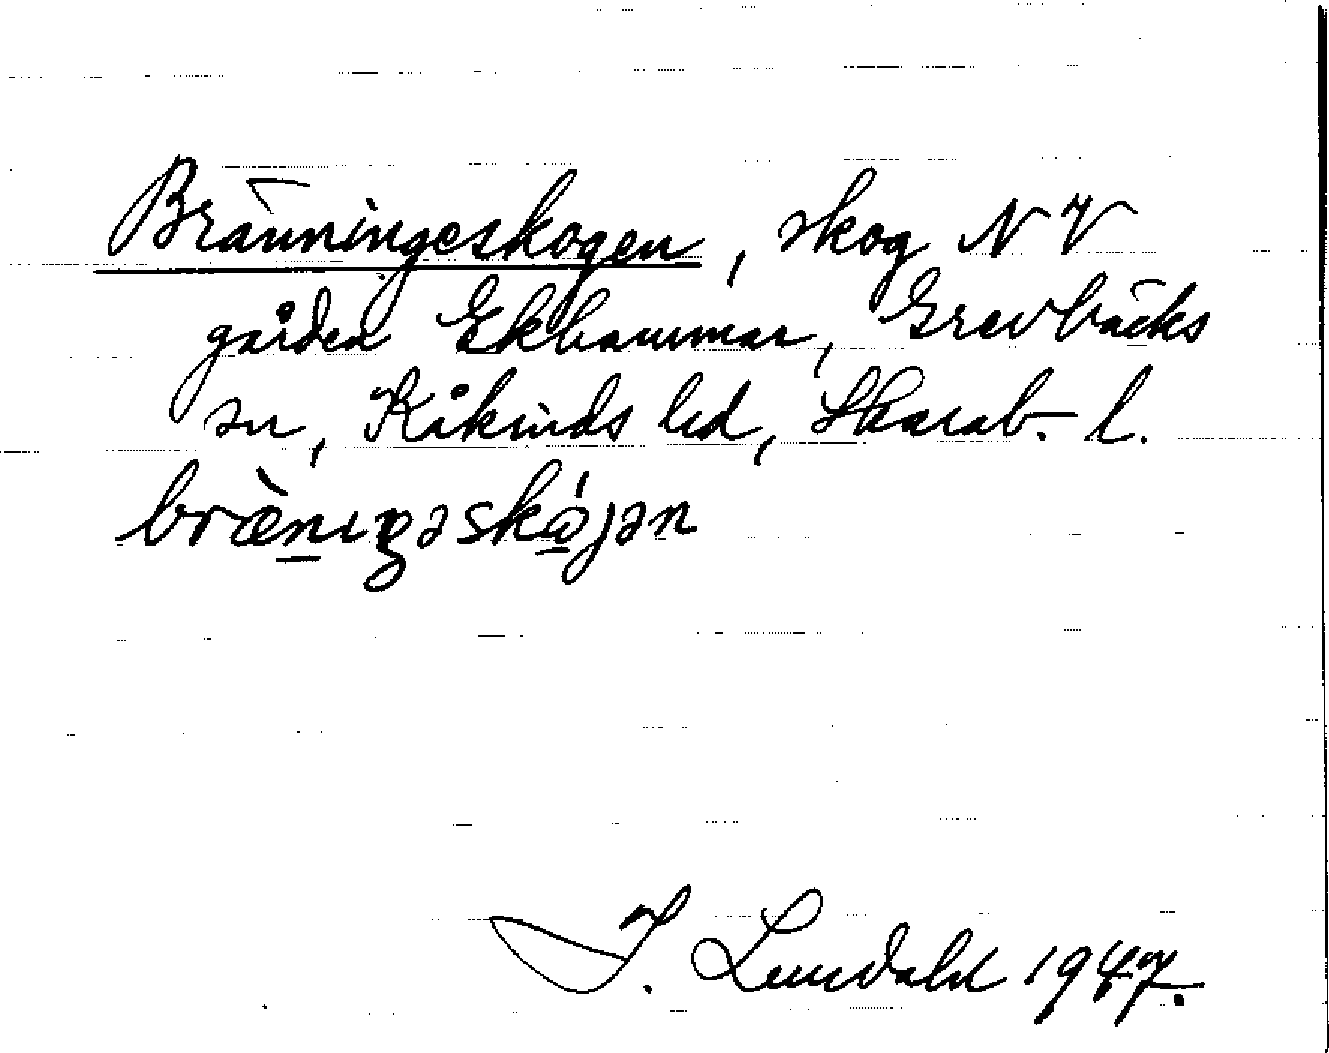 Bränningeskogen, skog NV
gården Ekhammar, Grevbäcks
sn, Kåkinds hd, Skarab. l.
brænıŋəskɷ́jən
I. Lundahl 1947.